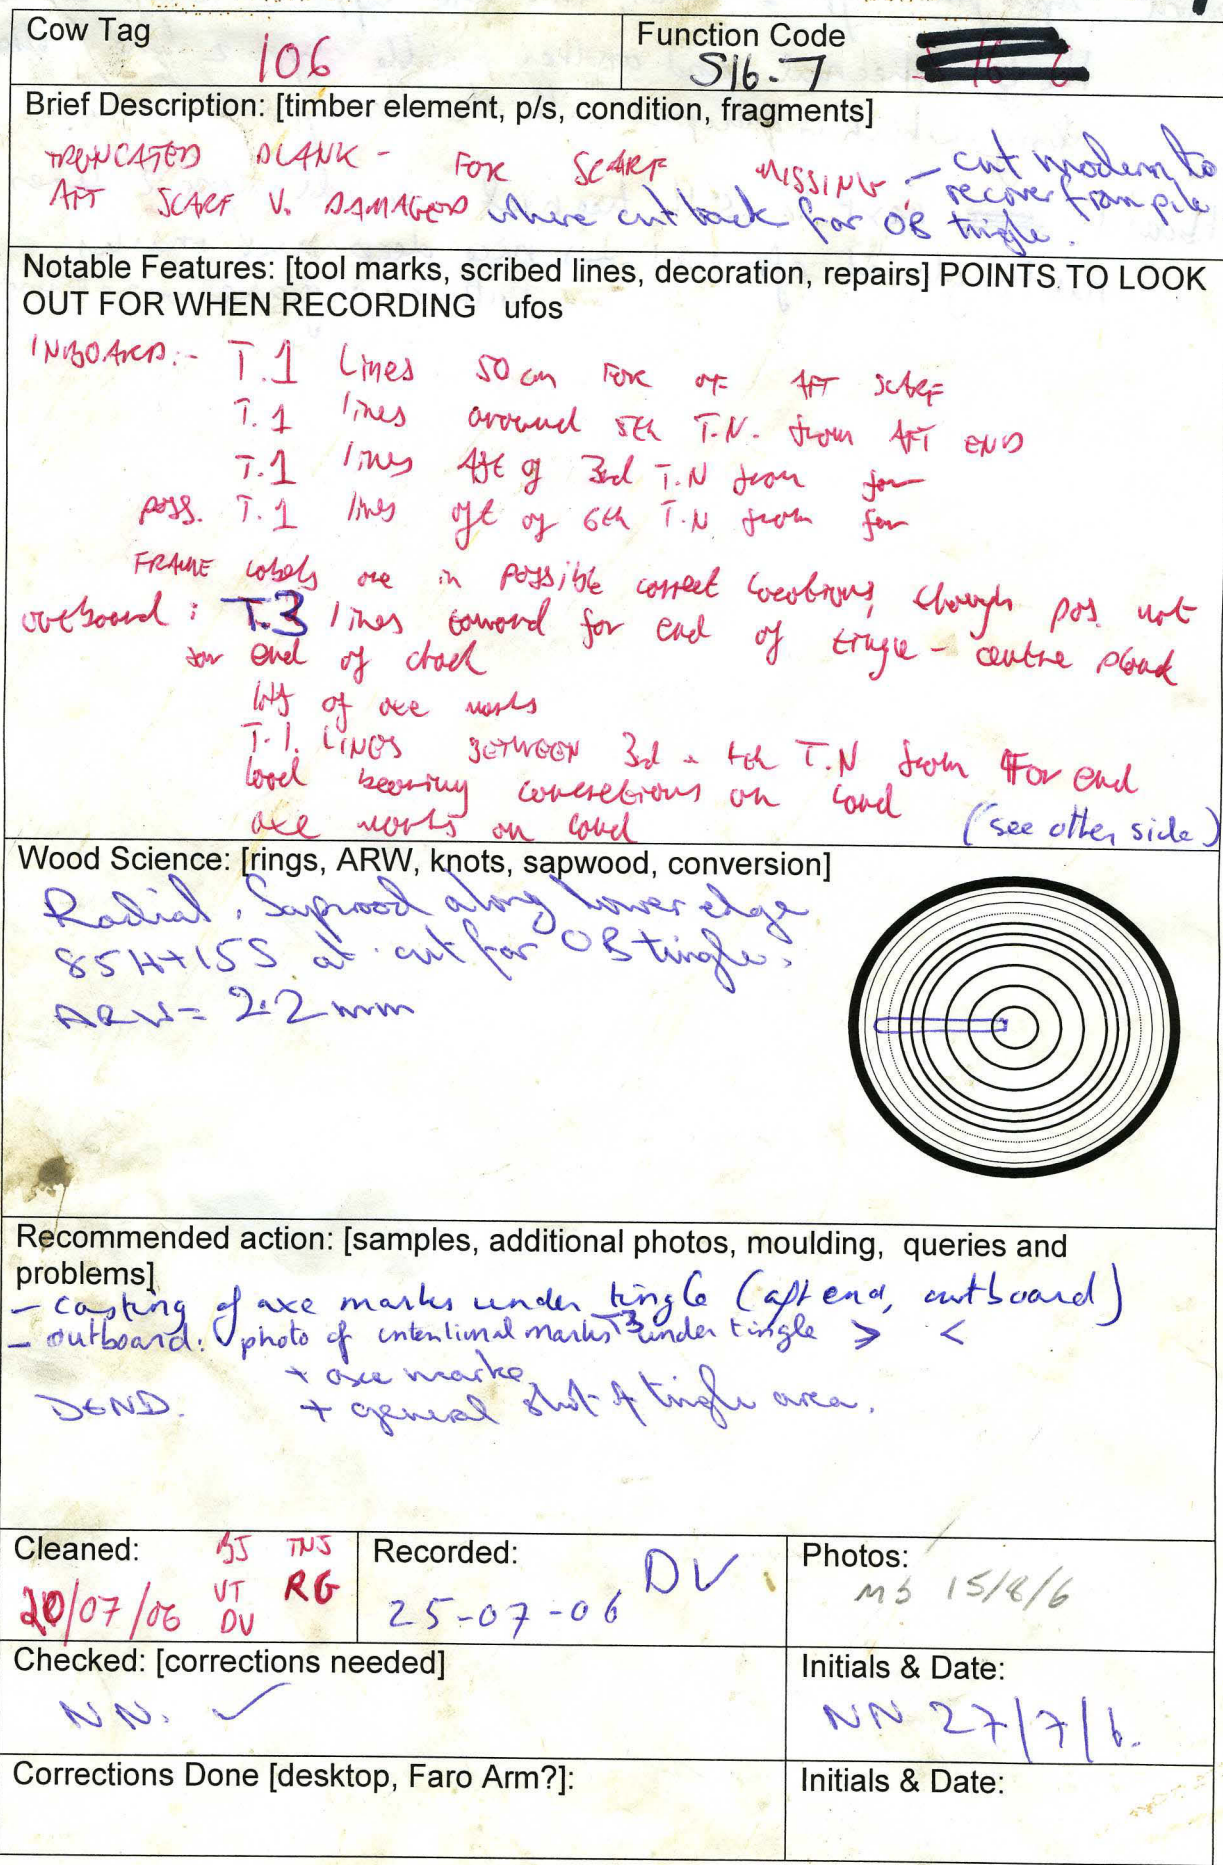 Cow Tag
106
Function Code
S16-7
Brief Description: [timber element, p/s, condition, fragments]
TRUNCATED PLANK - FOR SCARF MISSING, - cut modern to
recover from pile
AFT SCARF V. DAMAGED where cut back for OB tingle.
Notable Features: [tool marks, scribed lines, decoration, repairs] POINTS TO LOOK
OUT FOR WHEN RECORDING ufos
INBOARD:- T.1 Lines 50 cm FOR OF AFT SCARF
T.1 lines around 5th T.N. from AFT END
T.1 lines Aft of 3rd T.N from for
poss. T.1 lines aft of 6th T.N from for
FRAME labels are in possible correct locations, though pos. not
outboard: T.3 lines toward for end of tingle - centre plank
for end of
lots of axe marks
T.1. LINES BETWEEN 3rd - 4th T.N from For end
load bearing concretions on land
axe marks on land
(see other side)
Wood Science: [rings, ARW, knots, sapwood, conversion]
Radial. Sapwood along lower edge
85H+15S at cut for OB tingle.
ARW= 2.2mm
Recommended action: [samples, additional photos, moulding, queries and
problems]
- casting of axe marks under tingle (aft end, outboard)
- outboard: photo of intentional marks T3 under tingle > <
+ axe marks
DEND. + general shot of tingle area.
Cleaned: BJ TNJ
20/07/06 VT RG
DV
Recorded: DV.
25-07-06
Photos:
MS 15/8/6
Checked: [corrections needed]
NN. ✓
Initials & Date:
NN 27/7/6.
Corrections Done [desktop, Faro Arm?]:
Initials & Date: